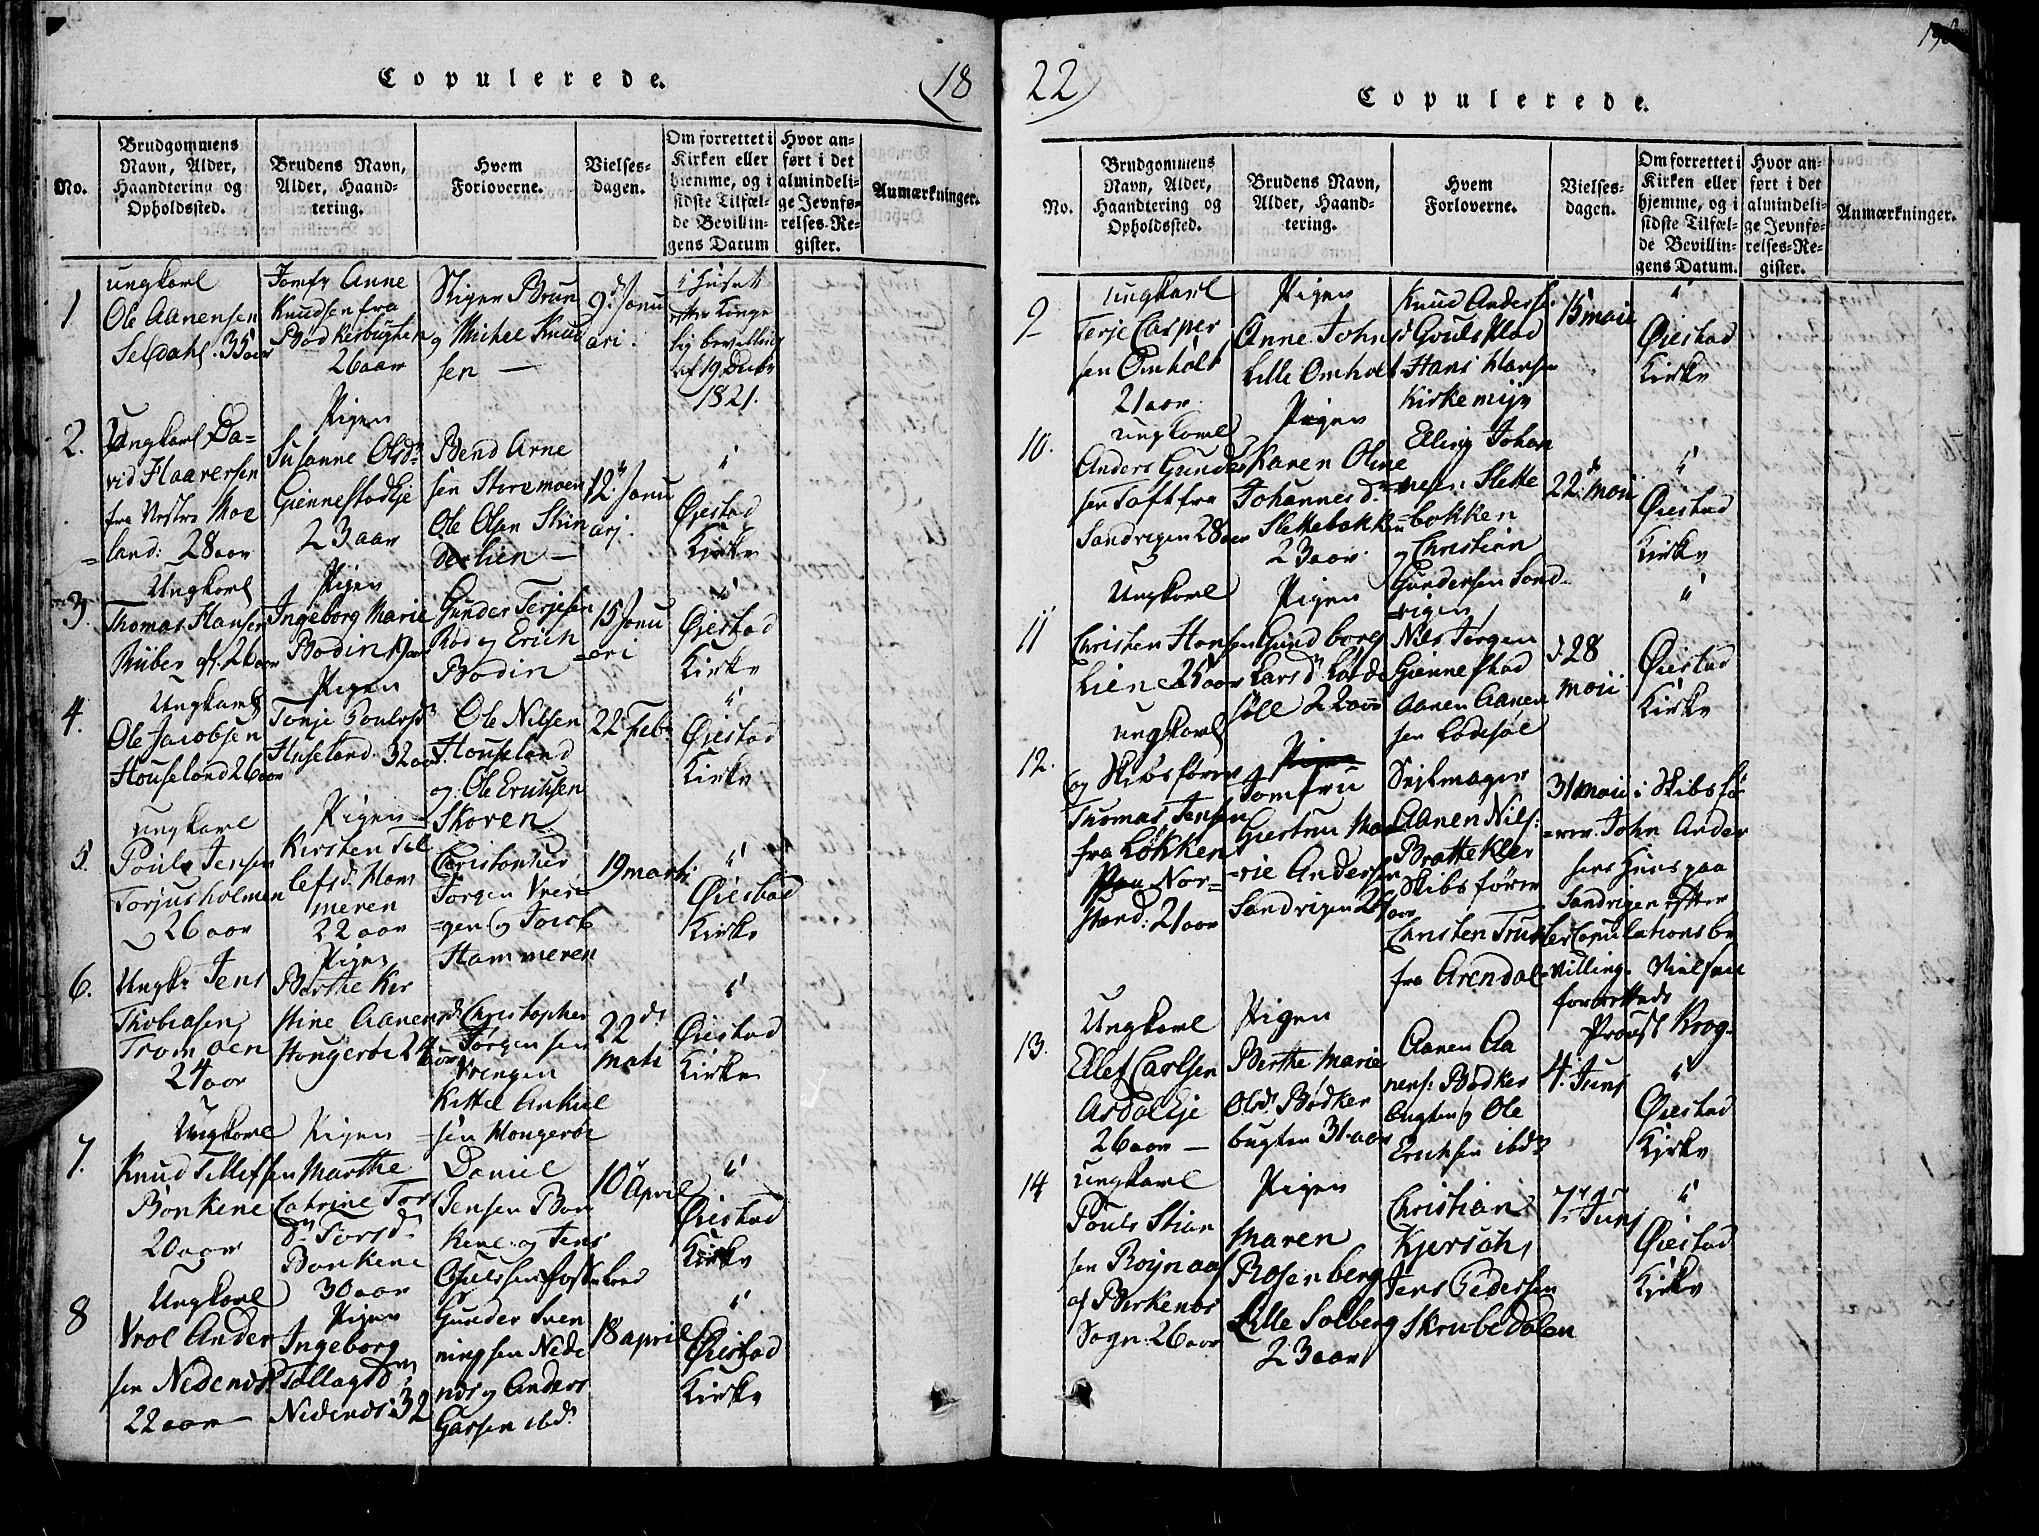 Copulerede.
18
No.
Brudgommens
Navn, Alder,
Haandtering og
Opholdssted.
Brudens Navn,
Alder, Haand-
tering.
Hvem
Forloverne.
Vielses-
dagen.
Om forrettet i
Kirken eller
hjemme, og i
sidste Tilfæl-
de Bevillin-
gens Datum
Hvor an-
ført i det
almindeli-
ge Jevnfø-
relses-Re-
gister.
Anmærkninger.
1
ungkarl
Ole Aanensen
Seldahl. 35 aar
Jomfr Anne
Knudsen fra
Bødkerbugten
26 aar
Stiger Brun
og Michel Knud
sen —
9 Janu
ari.
i Huset
efter Konge
lig bevilling
af 19 Decbr
1821.
2.
Ungkarl Da-
vid Haaversen
fra Vestre Moe
land: 28 aar
Pigen
Susanne Olsd.
Giennestad Eje
23 aar
Bend Arne
sen Storemoen
Ole Olsen
lien —
12 Janu
arj.
Øiestad
Kirke
3.
Ungkarl
Thomas Hansen
26 aar
Pigen
Ingeborg Marie
Bodin 19 aar
Gunder Terjesen
Rød og Erich
Bodin
15 Janu
ari
Øiestad
Kirke
4.
Ungkarl
Ole Jacobsen
Houseland 26 aar
Pigen
Tonje Poulsd
Huseland. 32 aar
Ole Nilsen
Houseland
og Ole Erichsen
Skoren
22 Feb.
Øiestad
Kirke
5.
ungkarl
Pouls Jensen
Torjusholmen
26 aar
Pigen
Kirsten Tel
lefsd. Ham
meren
22 aar
Christopher
Jørgen Vren
gen og Jacob
Hammeren
19 marti
Øiestad
Kirke
6.
Ungk. Jens
Thobiasen
Tromøen
24 aar
Pigen
Berthe Kir
stine Aanensd
24 aar
Christopher
Jørgensen
Vrengen
Kittel
sen
22
Marti
Øiestad
Kirke
7.
Ungkarl
Knud Tellefsen
Bonkene
20 aar
Pigen
Marthe
Catrine Tors
d. Torsd.
Bonkene
30 aar
Daniel
Jensen Bon
kene og Jens
10 April
Øiestad
Kirke
8
Ungkarl
Vrol Ander
sen Nedenes
22 aar
Pigen
Ingeborg
Nedenes: 32
Gunder Sven
ningsen Nede
nes og Anders
ibd.
18 april
Øiestad
Kirke
22
Copulerede.
No.
Brudgommens
Navn, Alder,
Haandtering og
Opholdssted.
Brudens Navn,
Alder, Haand-
tering.
Hvem
Forloverne.
Vielses-
dagen.
Om forrettet i
Kirken eller
hjemme, og i
sidste Tilfæl-
de Bevillin-
gens Datum.
Hvor an-
ført i det
almindeli-
ge Jevnfø-
relses-Re-
gister.
Anmærkninger.
9
Ungkarl
Terje Casper
sen Omholt
21 aar.
Pigen
Anne Johnsd
Lille Omholt
Knud Anderse
Goulsstad
Hans Hansen
Kirkemyr
15 maii
Øiestad
Kirke
10.
ungkarl
Anders Gunder
sen Toft fra
Sandvigen 28 aar
Pigen
Karen Oline
Johannesd.
Slettebakken
23 aar.
Elling Johan
nesen Slette
bakken
og Christian
Gundersen Sand
vigen
22 Maii
Øiestad
Kirke
11
Ungkarl
Christen Hansen
Lien 25 aar
Pigen
Gundborg
Larsd Løde
søll 22 aar
Nils Jørgen
Giennestad
Aanen Aanen
sen Lødesøl
28
maii
Øiestad
Kirke
12.
ungkarl
og Skibsfører
Thomas Jensen
fra Løkken
Nor-
strand: 21 aar
Jomfru
Giertru Ma
rie Andersen
Sandvigen
Sejlmager
Aanen Nils:
Brattekler
Skibsfører
Christen
fra Arendal
31 Maii i Skibsfø
rer John Ander
sens Huus paa
Sandvigen efter
Copulations be
villing. Vielsen
forrettede
Proust Krog-
13.
Ungkarl
Ellef Carlsen
Asdal Eje
26 aar —
Pigen
Berthe Marie
Olsd. Bødker
bugten 31 aar
Aanen Aa
nens: Bødker
bugten og Ole
Erichsen ibd.
4. Junj
Øiestad
Kirke
14
ungkarl
Pouls Stian
sen Roynaas
af Birkenes
Sogn. 26 aar
Pigen
Maren
Rosenberg
Lille Solberg
23 aar
Christian
Jens Pedersen
Skrubedalen
7. Junj
Øiestad
Kirke